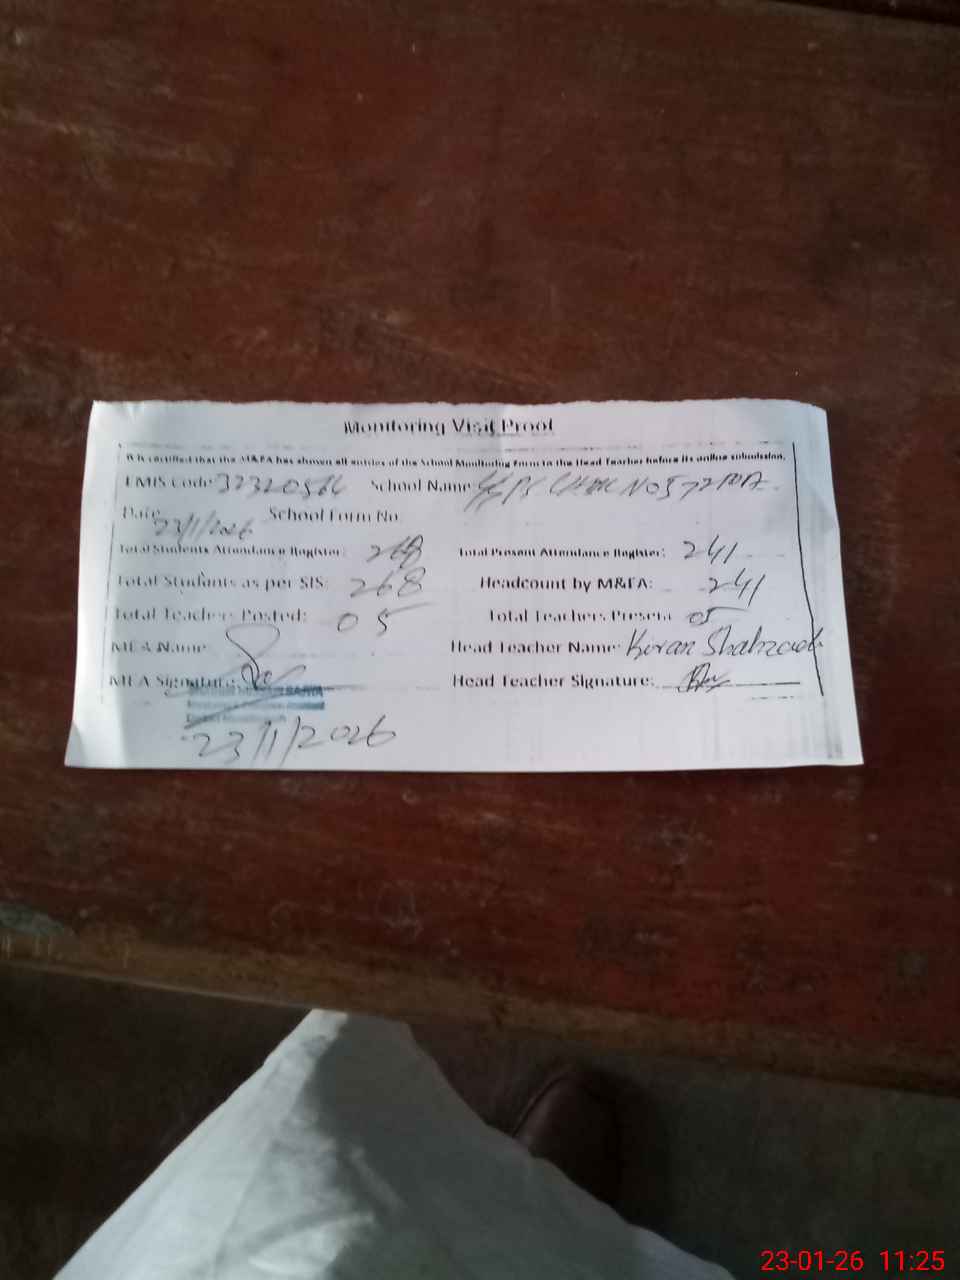 Monitoring Visit Proof
It is certified that the M&EA has shown all entries of the School Monitoring Form to the Head Teacher before its online submission.
EMIS Code: 32320566 School Name: NO 572
Date 23/1/2026 School Form No.
Total Students Attendance Register: 268 Total Present Attendance Register: 241
Total Students as per SIS: 268 Headcount by M&EA: 241
Total Teachers Posted: 05 Total Teachers Present 05
MEA Name Head Teacher Name: Kiran Shahzadi
MEA Signature: Head Teacher Signature:
23/1/2026
23-01-26 11:25